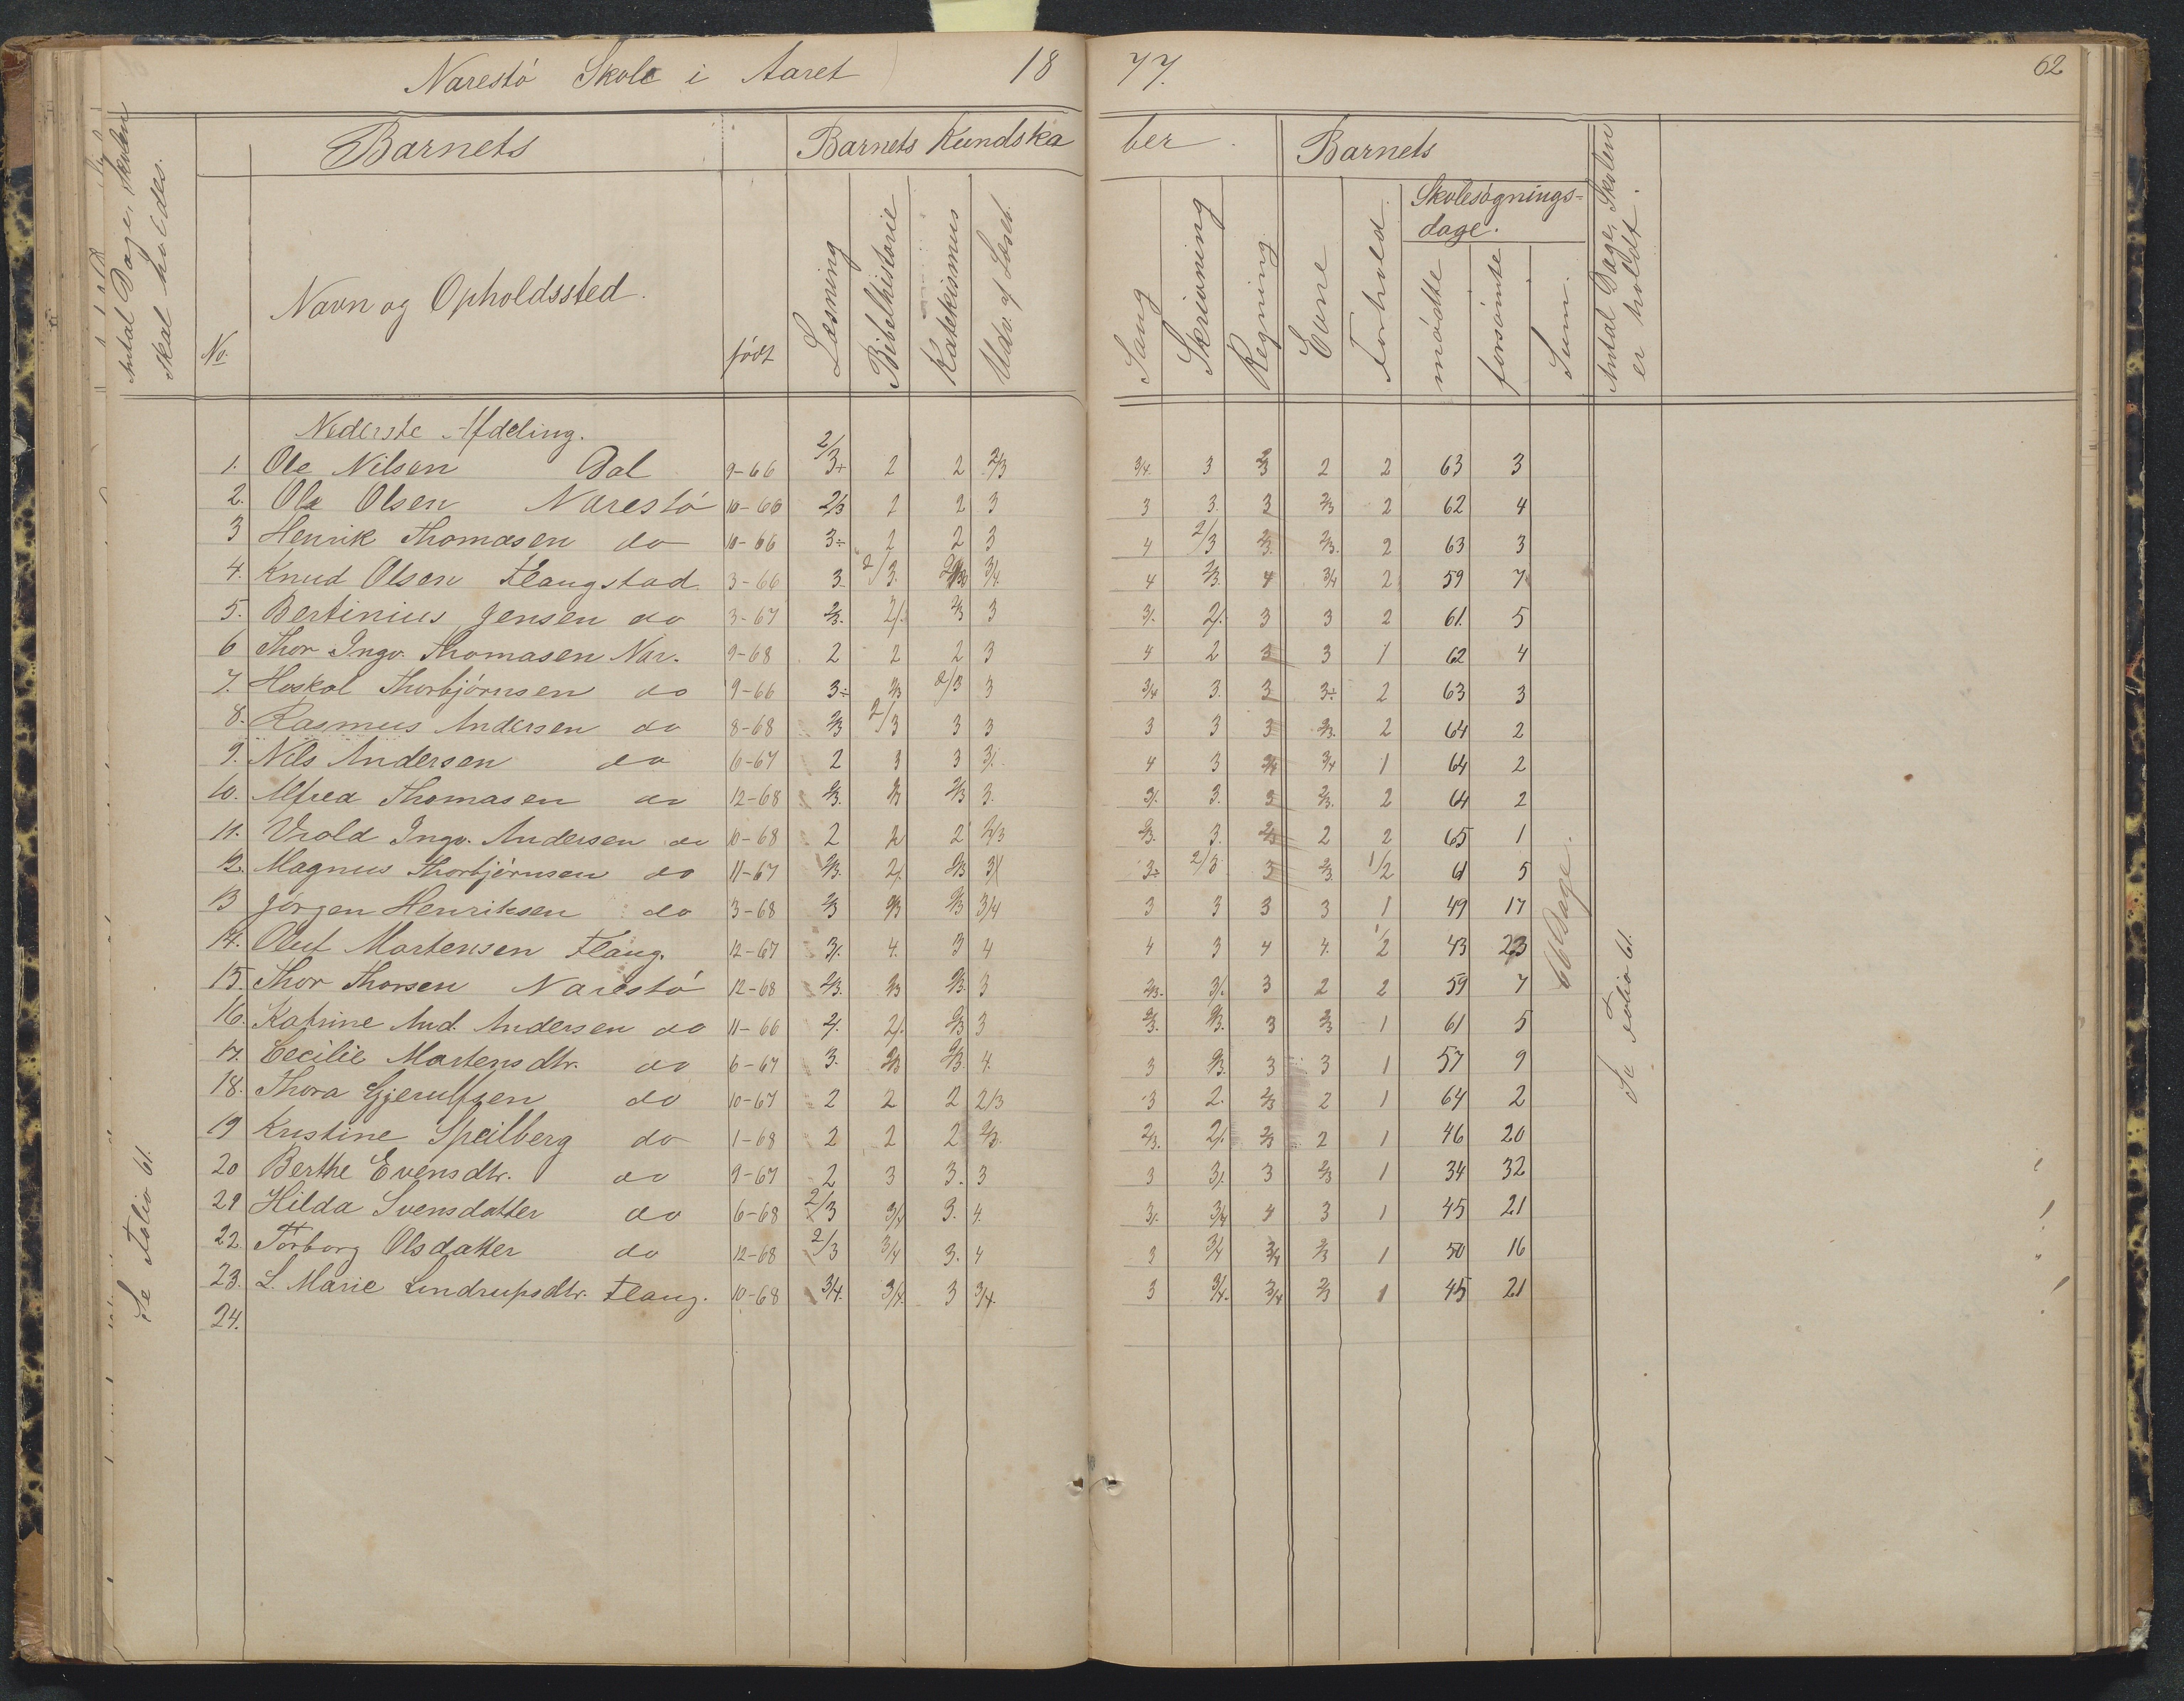 Narestö Skole i Aaret 1877.
62
Antal Dage, Skolen skal holdes.
Barnets
Barnets Kundskaber.
Barnets
No.
Navn og Opholdssted.
født
Læsning
Bibelhistorie
Katekismus
Udv. af Læseb.
Sang
Skrivning
Regning
Evne
Forhold.
Skolesøgnings-
dage.
mødte
forsømte
Sum.
Antal Dage, Skolen er holdt.
Nederste Afdeling.
1. Ole Nilsen Dal 9-66 2/3÷ 2 2 2/3 3/4. 3 2/3 2 2 63 3
2. Ole Olsen Narestö 10-66 2/3 2 2 3 3 3. 3 2/3 2 62 4
3 Henrik Thomasen do 10-66 3÷ 2 2 3 4 2/3 2/3. 2/3. 2 63 3
4. Knud Olsen Flangstad 3-66 3. 2/3. 3/4. 4 2/3. 4 3/4 2 59 7
5. Bertinius Jensen do 3-67 2/3. 2/. 2/3 3 3/. 2/. 3 3 2 61. 5
6 Thor Ingv. Thomasen Nar. 9-68 2 2 2 3 4 2 3 3 1 62 4
7. Haskol Thorbjörnsen do 9-66 3÷ 2/3 2/3 3 3/4 3. 3 3÷ 2 63 3
8. Rasmus Andersen do 8-68 2/3 2/3 3 3 3 3 3 2/3. 2 64 2
9. Nils Andersen do 6-67 2 3 3 3/. 4 3 3/4 3/4 1 64 2
10. Alfred Thomasen do 12-68 2/3. 2/3 2/3 3. 3/. 3. 3 2/3. 2 64 2
11. Vrold Ingv. Andersen do 10-68 2 2 2 2/3 2/3. 3. 2/3 2 2 65 1
12. Magnus Thorbjörnsen do 11-67 2/3. 2/. 2/3 3/ 3÷ 2/3 3 2/3. 1/2 61 5
13 Jörgen Henriksen do 3-68 2/3 2/3 2/3 3/4 3 3 3 3 1 49 17
14. Olut Mortensen Flang. 12-67 3/. 4. 3 4 4 3 4 4. 1/2 43 23
15. Thor Thorsen Narestö 12-68 2/3. 2/3 2/3. 3 2/3. 3/. 3 2 2 59 7
16. Katrine And. Andersen do 11-66 2/. 2/. 2/3 3 2/3. 2/3. 3 2/3 1 61 5
17. Cecilie Martensdtr. do 6-67 3. 2/3 2/3. 4. 3 2/3. 3 3 1 57 9
18. Thora Gjerulfsen do 10-67 2 2 2 2/3 3 2. 2/3 2 1 64 2
19 Kristine Speilberg do 1-68 2 2 2 2/3. 2/3. 2/. 2/3 2 1 46 20
20 Berthe Evensdtr. do 9-67 2 3 3. 3 3 3/. 3 2/3 1 34 32
21 Hilda Svensdatter do 6-68 2/3 3/4 3. 4. 3/. 3/4 4 3 1 45 21
22. Torborg Olsdatter do 12-68 2/3 3/4 3. 4 3 3/4 3/4 2/3 1 50 16
23. L. Marie Lindrupsdtr. Flang. 10-68 3/4. 3/4. 3 3/4. 3 3/4. 3/4 2/3 1 45 21
24.
Se Folio 61.
66 Dage.
Se Folio 61.